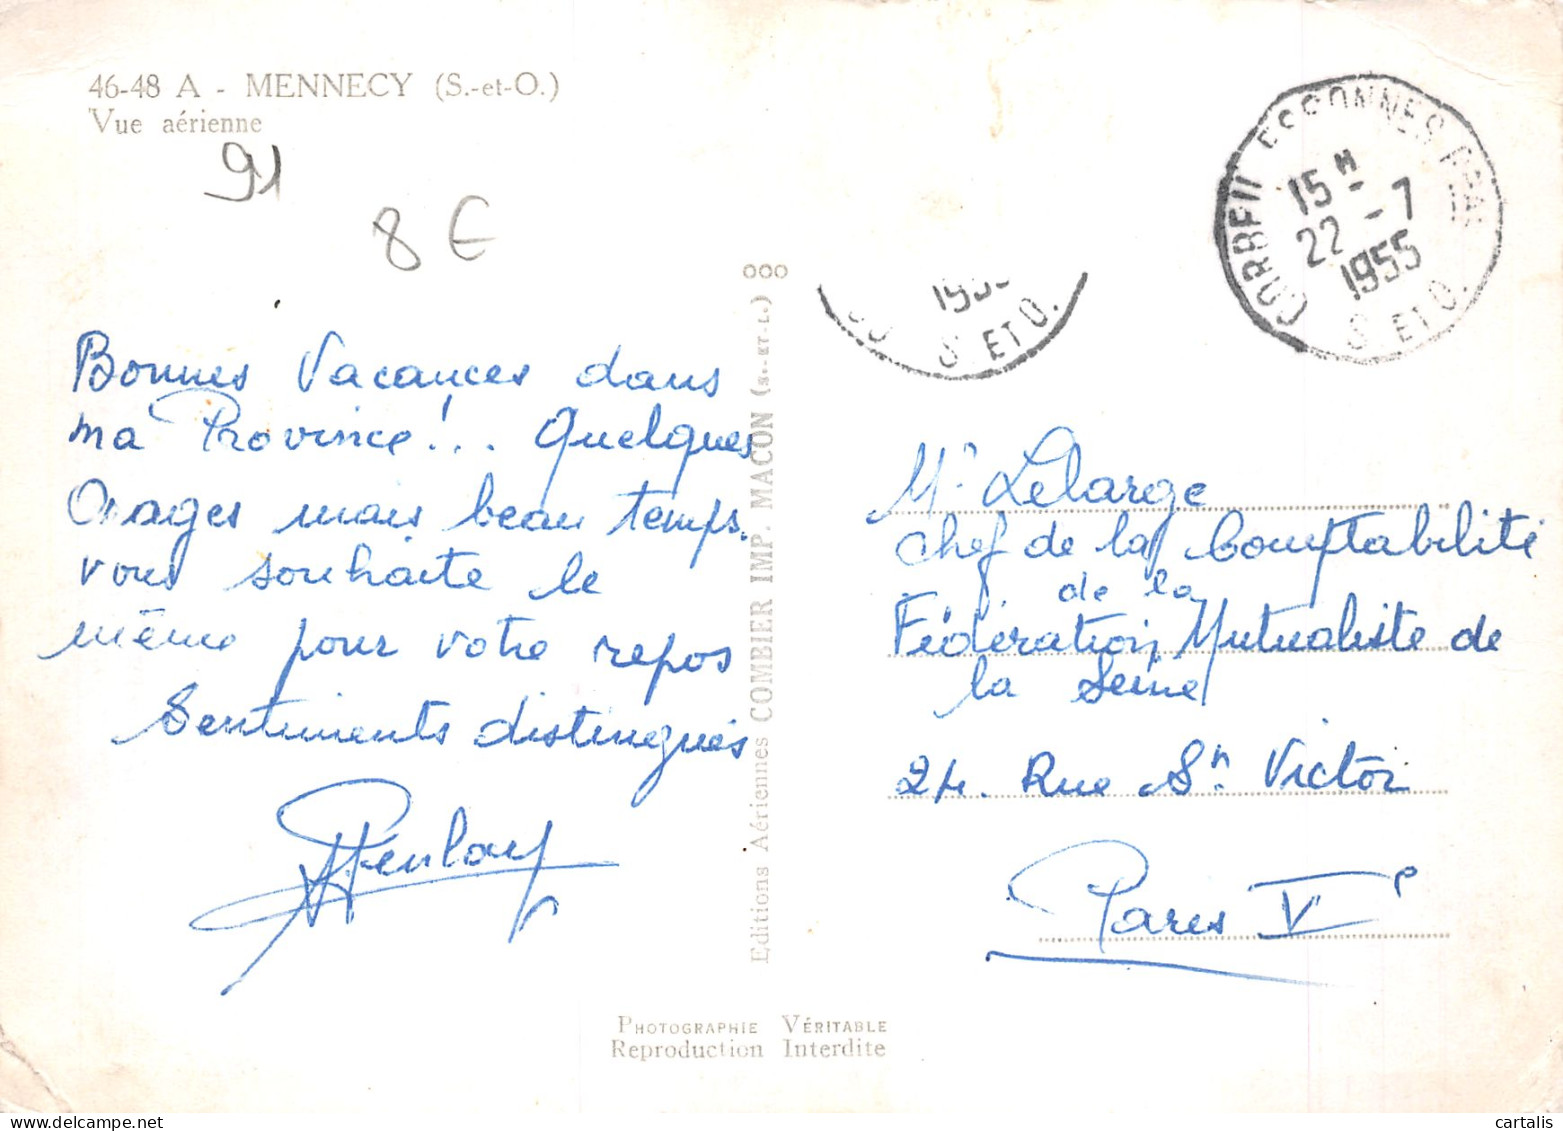 46-48 A - MENNECY (S.-et-O.)
Vue aérienne
91
8 €
Bonnes Vacances dans
ma Province!.. Quelques
Orages mais beau temps.
vous souhaite le
même pour votre repos
Sentiments distingués
Editions Aériennes COMBIER IMP. MACON (S.-ET-L.) OOO
195
S. ET O.
CORBEIL ESSONNES
15 H
22 - 7
1955
S. ET O.
Mr Lelarge
Chef de la Comptabilité
de la
Fédération Mutualiste de
la Seine
24. Rue St Victor
Paris Ve
PHOTOGRAPHIE VÉRITABLE
Reproduction Interdite
cartalis